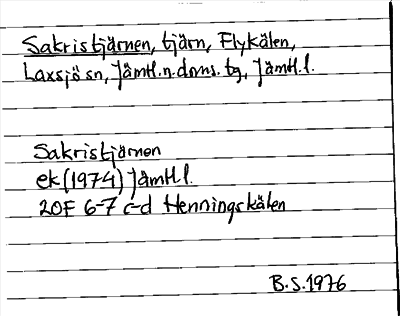 Sakristjärnen, tjärn, Flykälen,
Laxsjö sn, Jämtl.n.doms.tg, Jämtl.l.
Sakristjärnen
ek (1974) Jämtl l.
20F 6-7 c-d Henningskälen
B.S. 1976